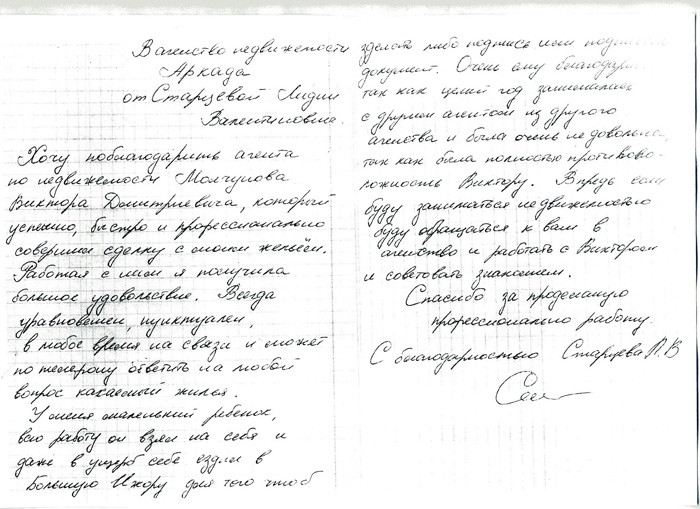 В агенство недвижемости
Аркада
от Старцевой Лидии
Валентиновны.
Хочу поблагодарить агента
по недвижемости Молчунова
Виктора Дмитриевича, который
успешно, быстро и профессионально
совершил сделку с моим жельём.
Работая с ним я получила
большое удовольствие. Всегда
уравновешен, пунктуален,
в любое время на связи и может
по телефону ответить на любой
вопрос касаемый жилья.
У меня маленький ребенок,
всю работу он взял на себя и
даже в ущерб себе ездил в
Большую Ижору для того чтоб
сделать либо подпись или
документ. Очень ему
так как целый год занималась
с другим агентом из другого
агенства и была очень не довольна,
так как была полностью противопо-
ложность Виктору. Впредь если
буду заниматься недвижемостью
буду обращаться к вам в
агенство и работать с Виктором
и советовать знакомым.
Спасибо за проделаную
профессионально работу.
С благодарностью Старцева Л.В